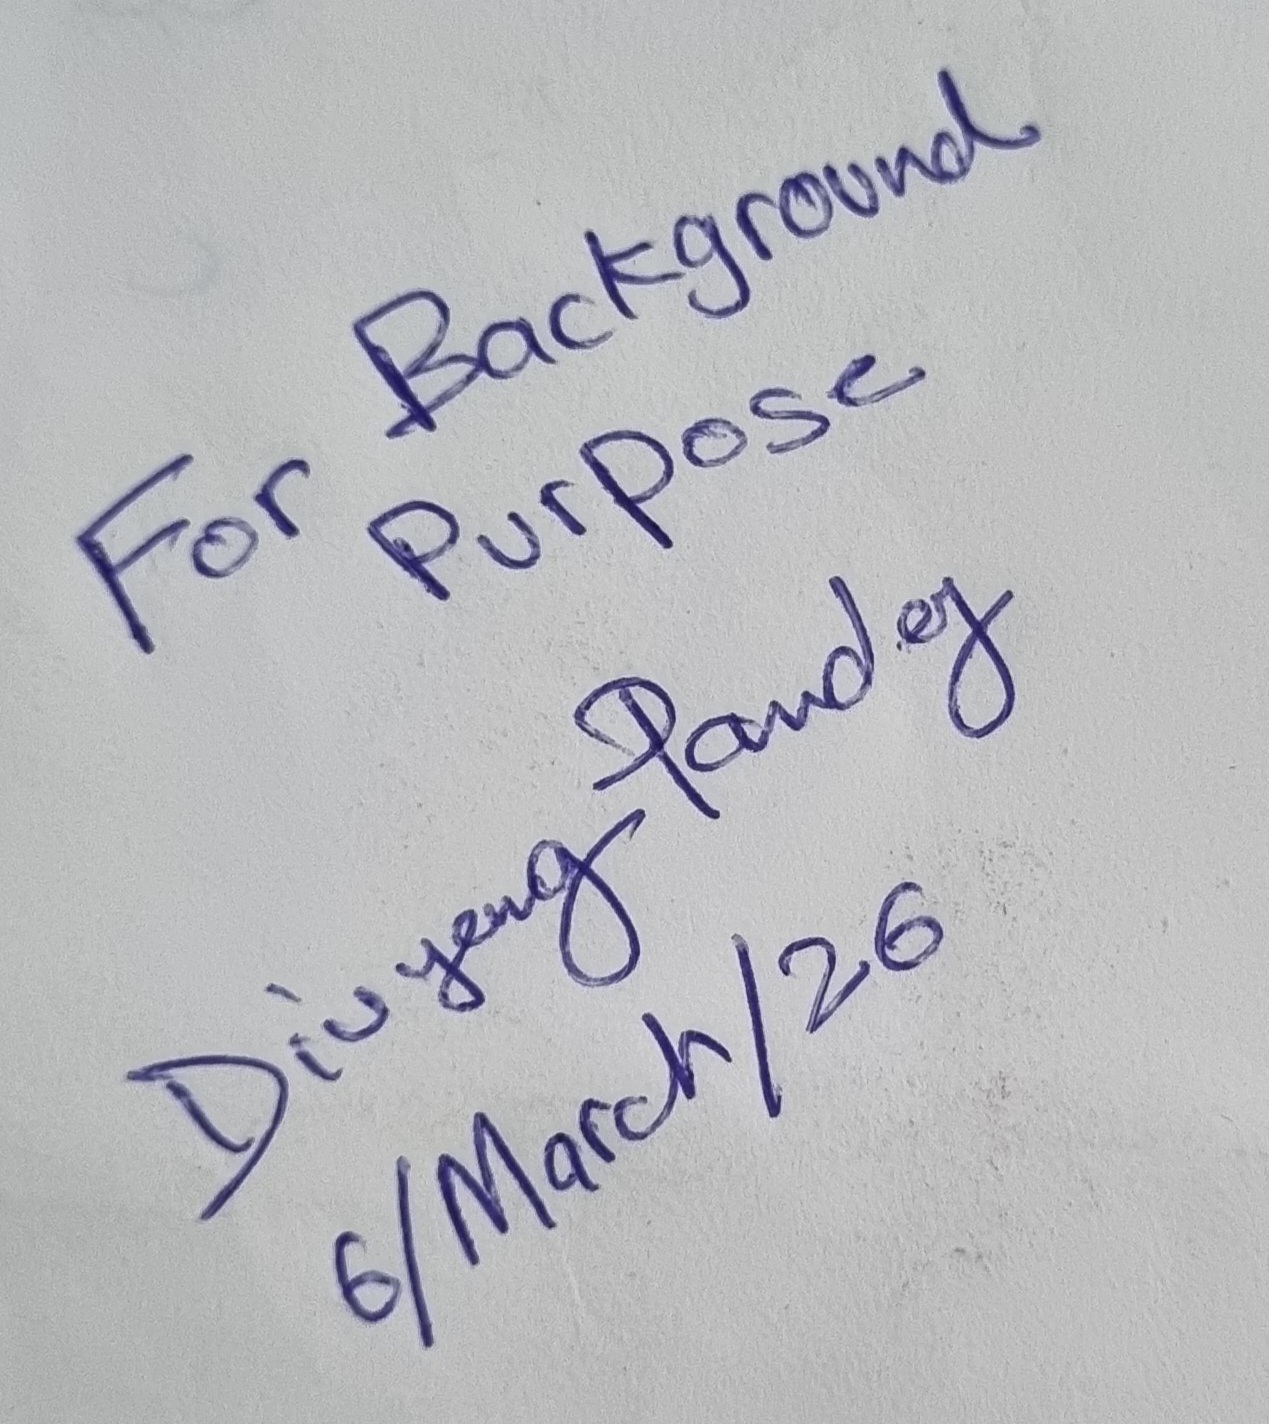 For Background
Purpose
Divyang Pandey
6/March/26